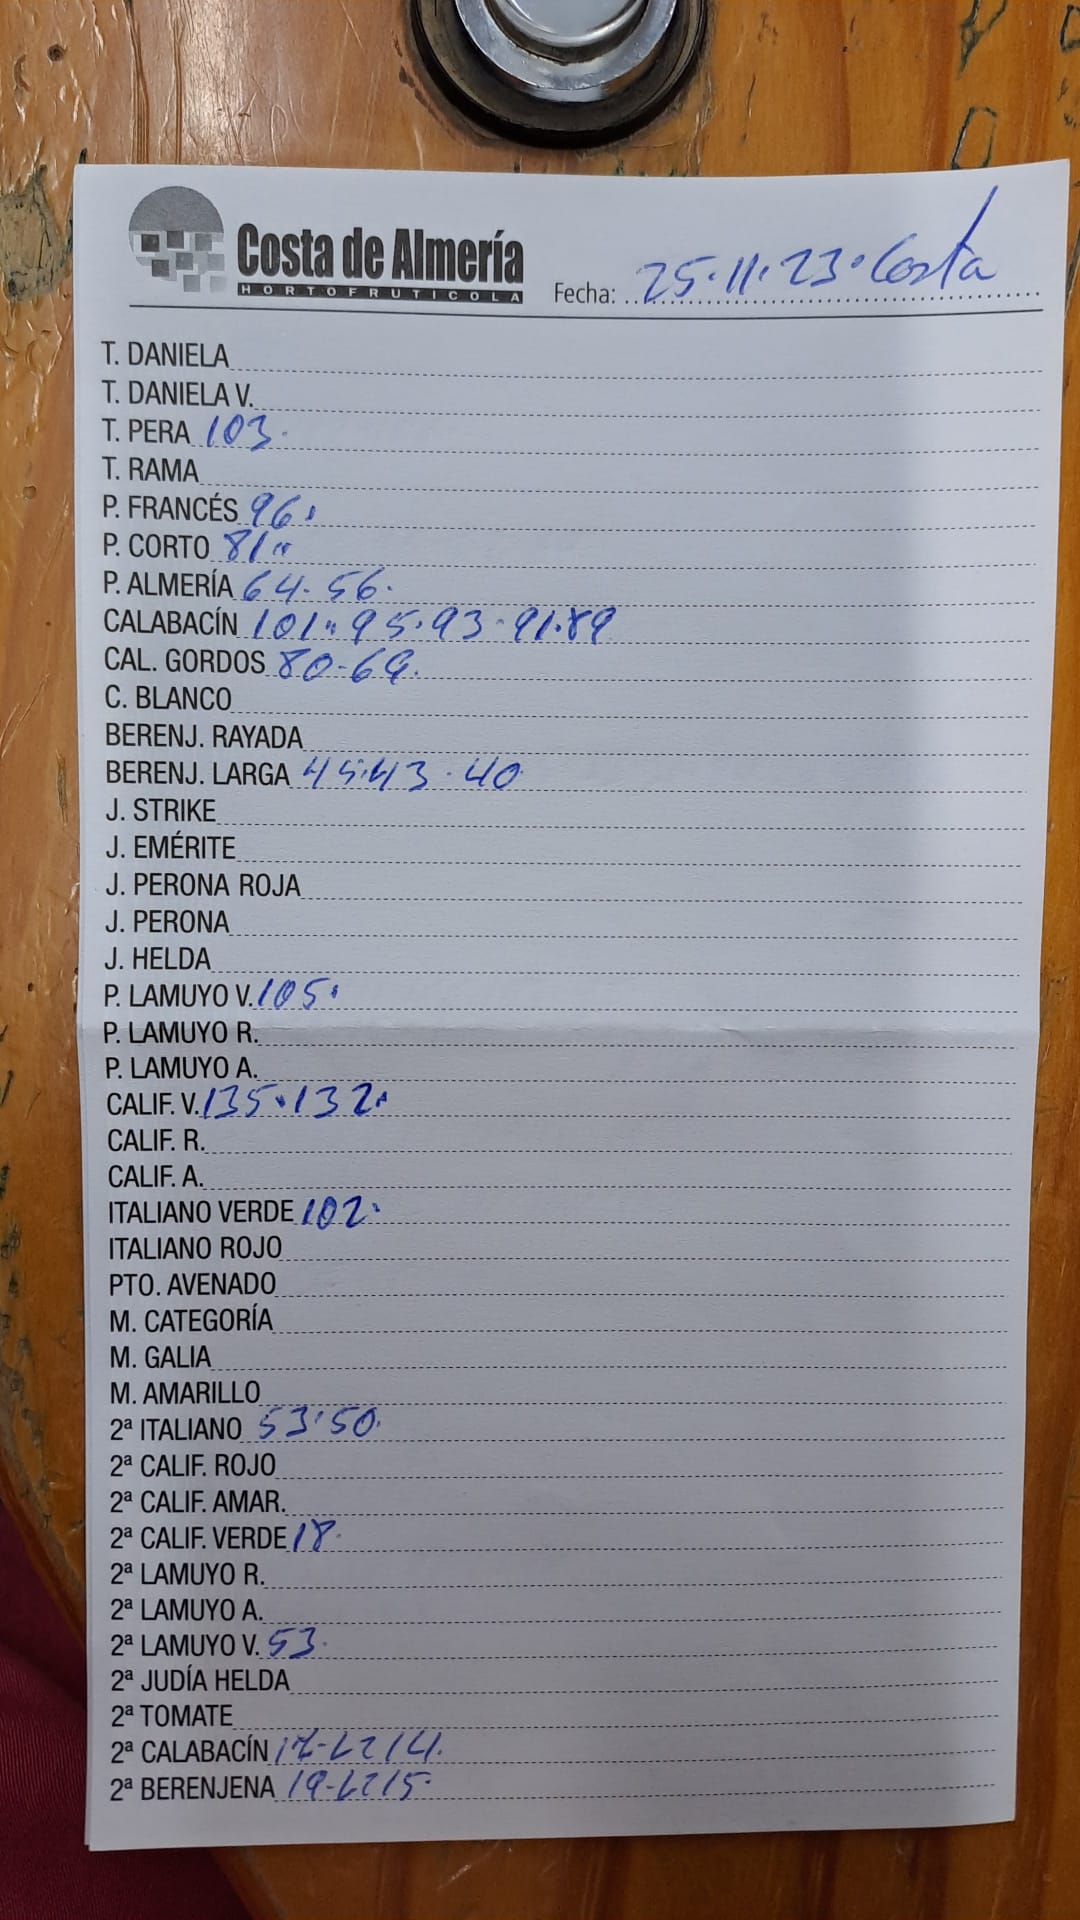 Costa de Almería
HORTOFRUTICOLA
Fecha: 25·11·23·Costa
T. DANIELA
T. DANIELA V.
T. PERA 103·
T. RAMA
P. FRANCÉS 96·
P. CORTO 81"
P. ALMERÍA 64·56·
CALABACÍN 101"95·93·91·89
CAL. GORDOS 80-69·
C. BLANCO
BERENJ. RAYADA
BERENJ. LARGA 45·43·40
J. STRIKE
J. EMÉRITE
J. PERONA ROJA
J. PERONA
J. HELDA
P. LAMUYO V. 105·
P. LAMUYO R.
P. LAMUYO A.
CALIF. V. 135·132·
CALIF. R.
CALIF. A.
ITALIANO VERDE 102·
ITALIANO ROJO
PTO. AVENADO
M. CATEGORÍA
M. GALIA
M. AMARILLO
2ª ITALIANO 53·50·
2ª CALIF. ROJO
2ª CALIF. AMAR.
2ª CALIF. VERDE 18·
2ª LAMUYO R.
2ª LAMUYO A.
2ª LAMUYO V. 53·
2ª JUDÍA HELDA
2ª TOMATE
2ª CALABACÍN
2ª BERENJENA